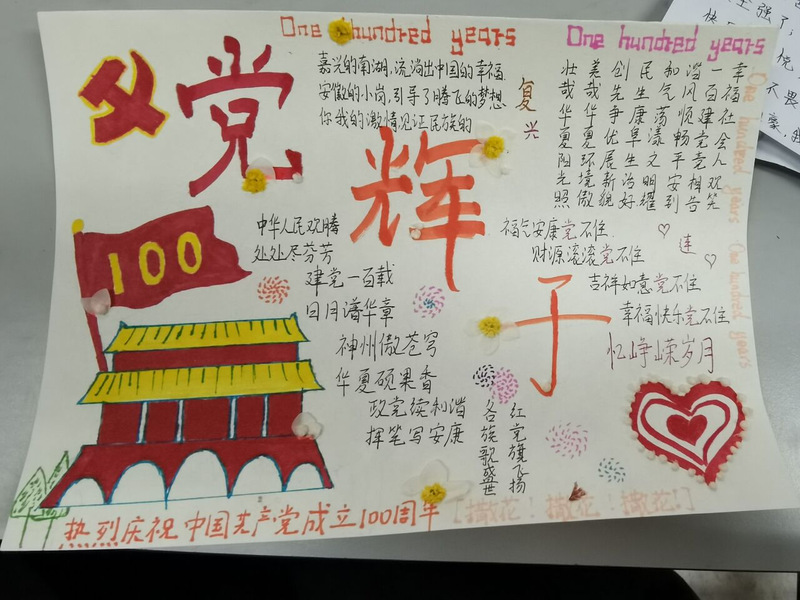 One hundred years
One hundred years
党
嘉兴的南湖,流淌出中国的幸福.
安徽的小岗,引导了腾飞的梦想.
你我的激情见证民族的
复兴
辉
子
壮哉华夏阳光照
美哉华夏环境傲
创先争优展新貌
民生康阜生活好
和气荡漾之明耀
谐风顺畅平安到
一百建党竞相告
幸福社会人欢笑
One hundred years One hundred years
100
中华人民欢腾
处处尽芬芳
建党一百载
日月谱华章
神州傲苍穹
华夏硕果香
政党续利谐
挥笔写安康
福气安康党不住
财源滚滚党不住
吉祥如意党不住
幸福快乐党不住
连
忆峥嵘岁月
红党旗飞扬
各族歌盛世
热烈庆祝中国共产党成立100周年
[撒花!撒花!撒花!]